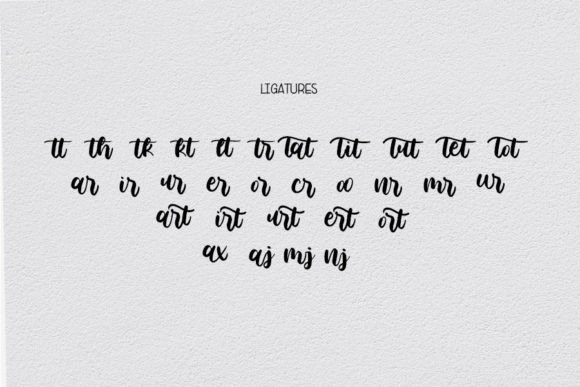 LIGATURES
tt th tk kt lt tr tat tit tut tet tot
ar ir ur er or cr oo nr mr wr
art irt urt ert ort
ax aj mj nj